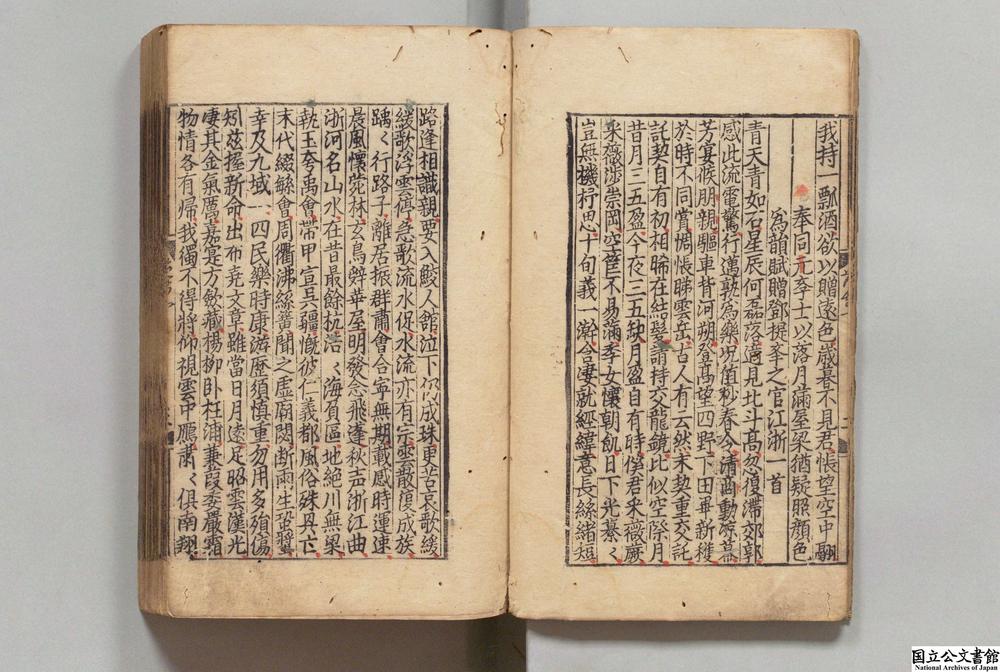 我持一瓢酒欲以贈遠色歲暮不見君悵望空中翮
奉同元學士以落月滿屋梁猶疑照顏色
為韻賦贈鄧提學之官江浙一首
青天青如石星辰何磊落適見北斗高忽復滯郊郭
感此流電驚行邁孰為樂況值杪春今清商動
芳宴候朋親驅車背河朔登高望四野下田畢新穫
於時不同賞惆悵睇雲岳古人有云然未契重交託
託契自有初相睎在結髮請持交龍鏡比似空際月
昔月三五盈今夜三五缺月盈自有時僕君采薇蕨
采薇涉崇岡空筐不易滿季女懷朝飢日下光纂〻
豈無機杼思十旬義一瀚含凄就經緯意長絲緒短
路逢相識親要入鮫人館泣下仍成珠更苦哀歌緩
緩歌浮雲停急歌流水促水流亦有宗雲散復成族
踽〻行路子離居振群肅會合寧無期載感時運速
晨風懷苑林玄鳥辭華屋明發念飛蓬秋聲浙江曲
浙河名山水在昔最餘杭浩〻海負區地絕川無梁
執玉夸禹會帶甲宣吳疆慨彼仁義都風俗殊丹亡
末代綴觧會周衢沸絲簧聞之虛廟閟斷雨生蛩螿
幸及九域一四民樂時康滋歷須慎重勿用多須傷
矧茲握新命出布堯文章雖當日月遠足昭雲漢光
凄其金氣厲嘉宴方歛藏楊柳卧枉浦蒹葭委嚴霜
物情各有歸我獨不得將仰視雲中鴈肅〻俱南翔
国立公文書館
National Archives of Japan